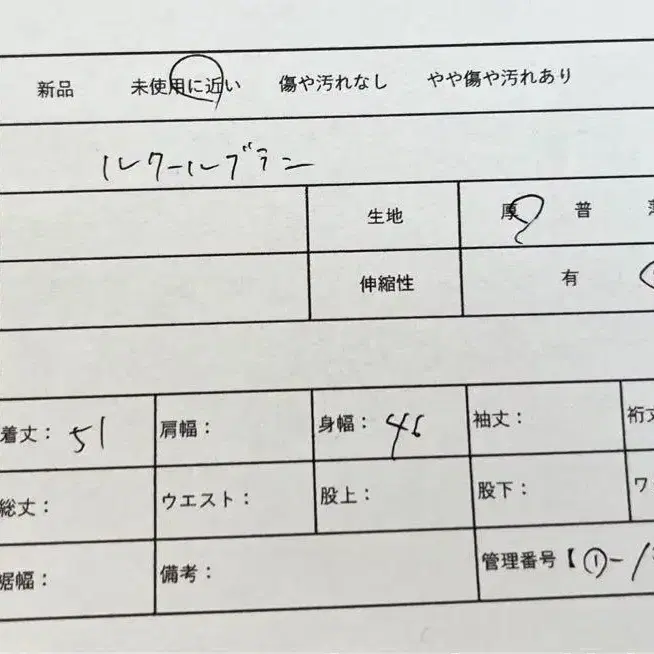 新品 未使用に近い 傷や汚れなし やや傷や汚れあり
ルクールブラン
生地 厚 普 薄
伸縮性 有
着丈： 51 肩幅： 身幅： 46 袖丈： 裄丈
総丈： ウエスト： 股上： 股下： ワ
裾幅： 備考： 管理番号【 ①-1